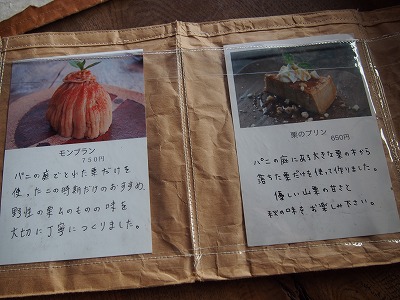 モンブラン
750円
パニの庭でとれた栗だけを
使ったこの時期だけのおすすめ
野性の栗そのものの味を
大切に丁寧につくりました。
栗のプリン
650円
パニの庭にある大きな栗の木から
落ちた栗だけを使って作りました。
優しい山栗の甘さと
秋の味をお楽しみ下さい。